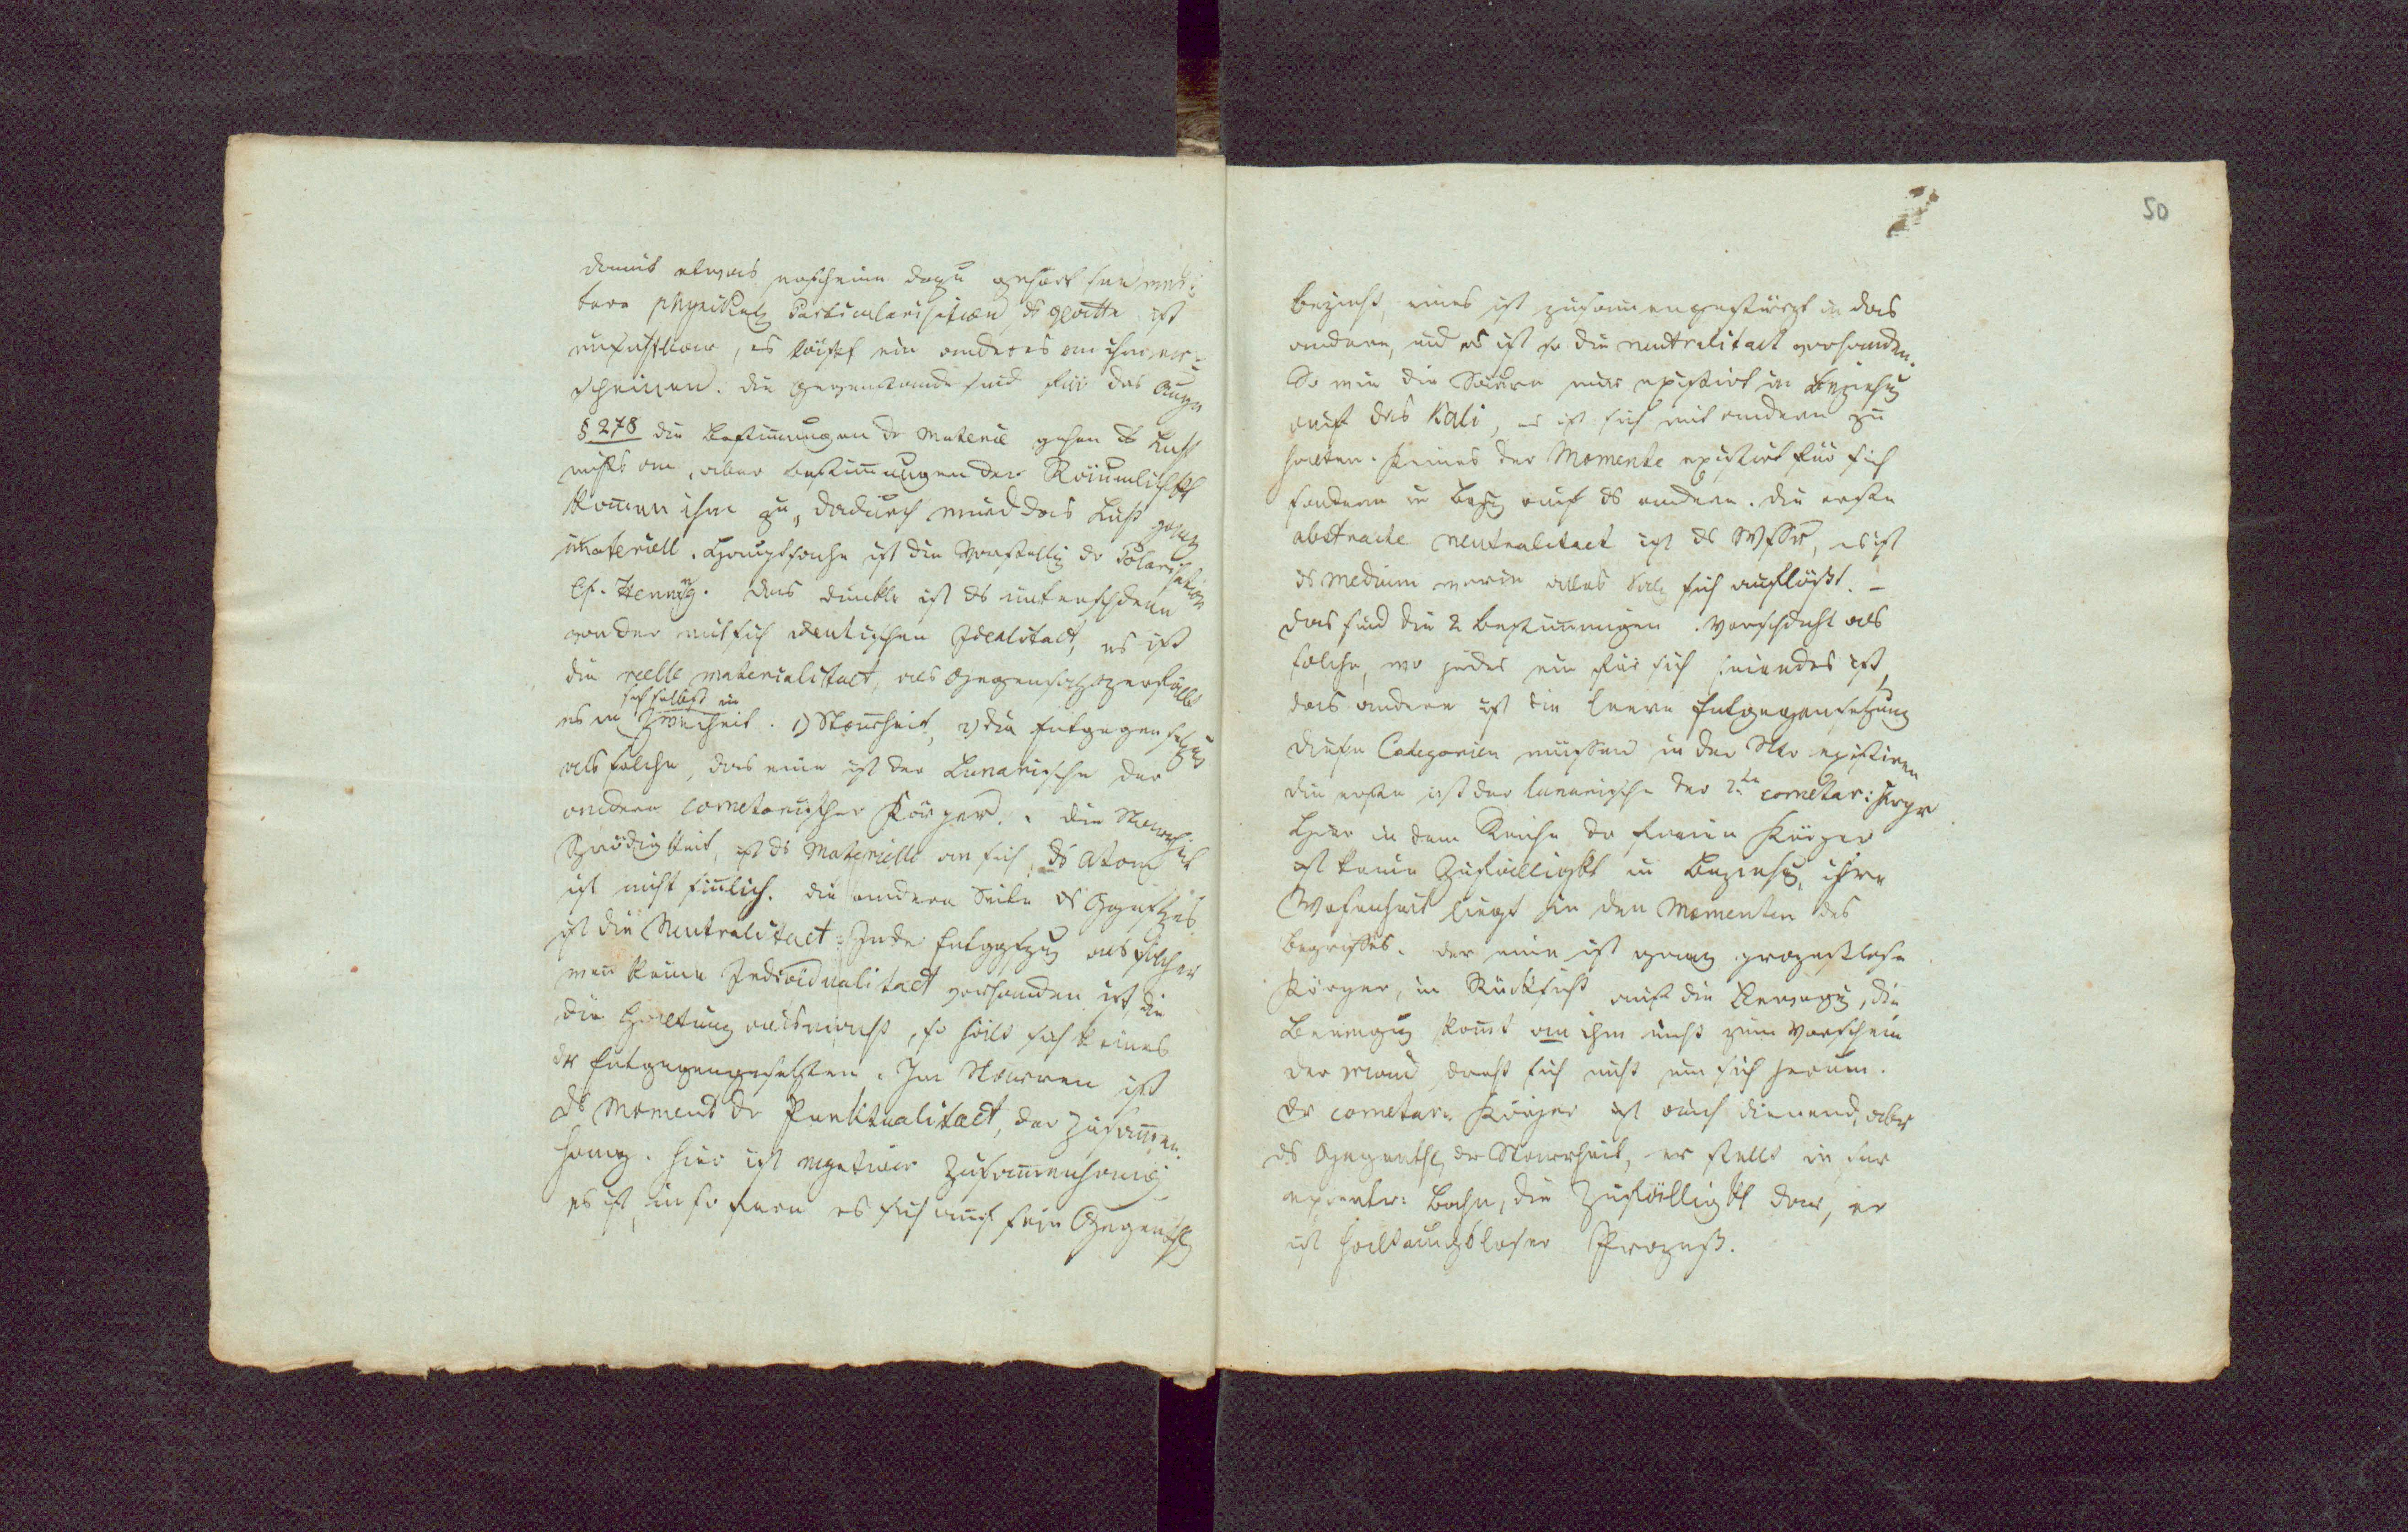 damit etwas erscheine dazu gehört
tere physikal Particularisation, ds glatte ist
unsichtbar, es läßt ein anderes an ihm er¬
scheinen. die Gegenstände sind für das Auge
§ 278 die Bestimungen dr Materie gehen ds Licht
nichts an, aber Bestimungen der Räumlichkt
komen ihm zu, dadurch wird das Licht ganz
materiell. Hauptsache ist die Vorstellg dr Polarisation
Cf. Hennig. das dunkle ist ds unterschdene
von der mit sich identischen Idealitaet, es ist
die reelle materialitaet, als Gegensatz zerfällt
sich selbst in
es in Zweiheit. 1) Starrheit, 2) die Entgegensetzug
als solche, das eine ist der Lunarische der
andere cometarischer Körper. die Starrheit
Sprödigkeit, ist ds Materielle an sich, ds Atom
ist nicht sinlich. die andere Seite ds Ggstzes
ist die Neutralitaet. In dr Entggstzg als solcher
wen keine Individualitaet vorhanden ist, die
die Haltung ausmacht, so hält sich keines
dr Entgegengesetzten. Im Starren ist
ds Moment dr Punktualitaet, der Zusamen¬
hang. hier ist negativer Zusamenhang
es ist, in so fern es sich auf sein Gegenthl
50
bezieht, eines ist zusammengestürzt in das
andere, und es ist so die neutralitaet vorhanden.
So wie die Säure nur existirt in Beziehg
auf das Kali, es ist sich mit andern zu
halten. Keines der Momente existirt für sich
sondern in Bezhg auf ds andere. die erste
abstracte neutralitaet ist ds Wssr, es ist
ds Medium worin alles Salz sich auflößt. –
das sind die 2 Bestimmungen. Verschdnht als
solche, wo jedes ein für sich seiendes ist,
das andere ist die leere Entgegensetzung
diese Categorien müssen in der Ntr existiren
die erste ist der lunarische der 2te cometar: Krpr
Hier in dem Reiche dr freien Körper
ist keine Zufälligkt in Beziehg, ihre
Wesenheit liegt in den Momenten des
Begriffes. der eine ist ganz prozeßlose
Körper, in Rücksicht auf die Bewegg, die
Bewegug komt am ihm nicht zum Vorschein
der Mond dreht sich nicht um sich herum.
dr cometar. Körper ist auch dienend, aber
ds Gegenthl dr Starrheit, er stellt in sr
excentr: Bahn, die Zufälligkt dar, er
ist haltungsloser Prozeß.